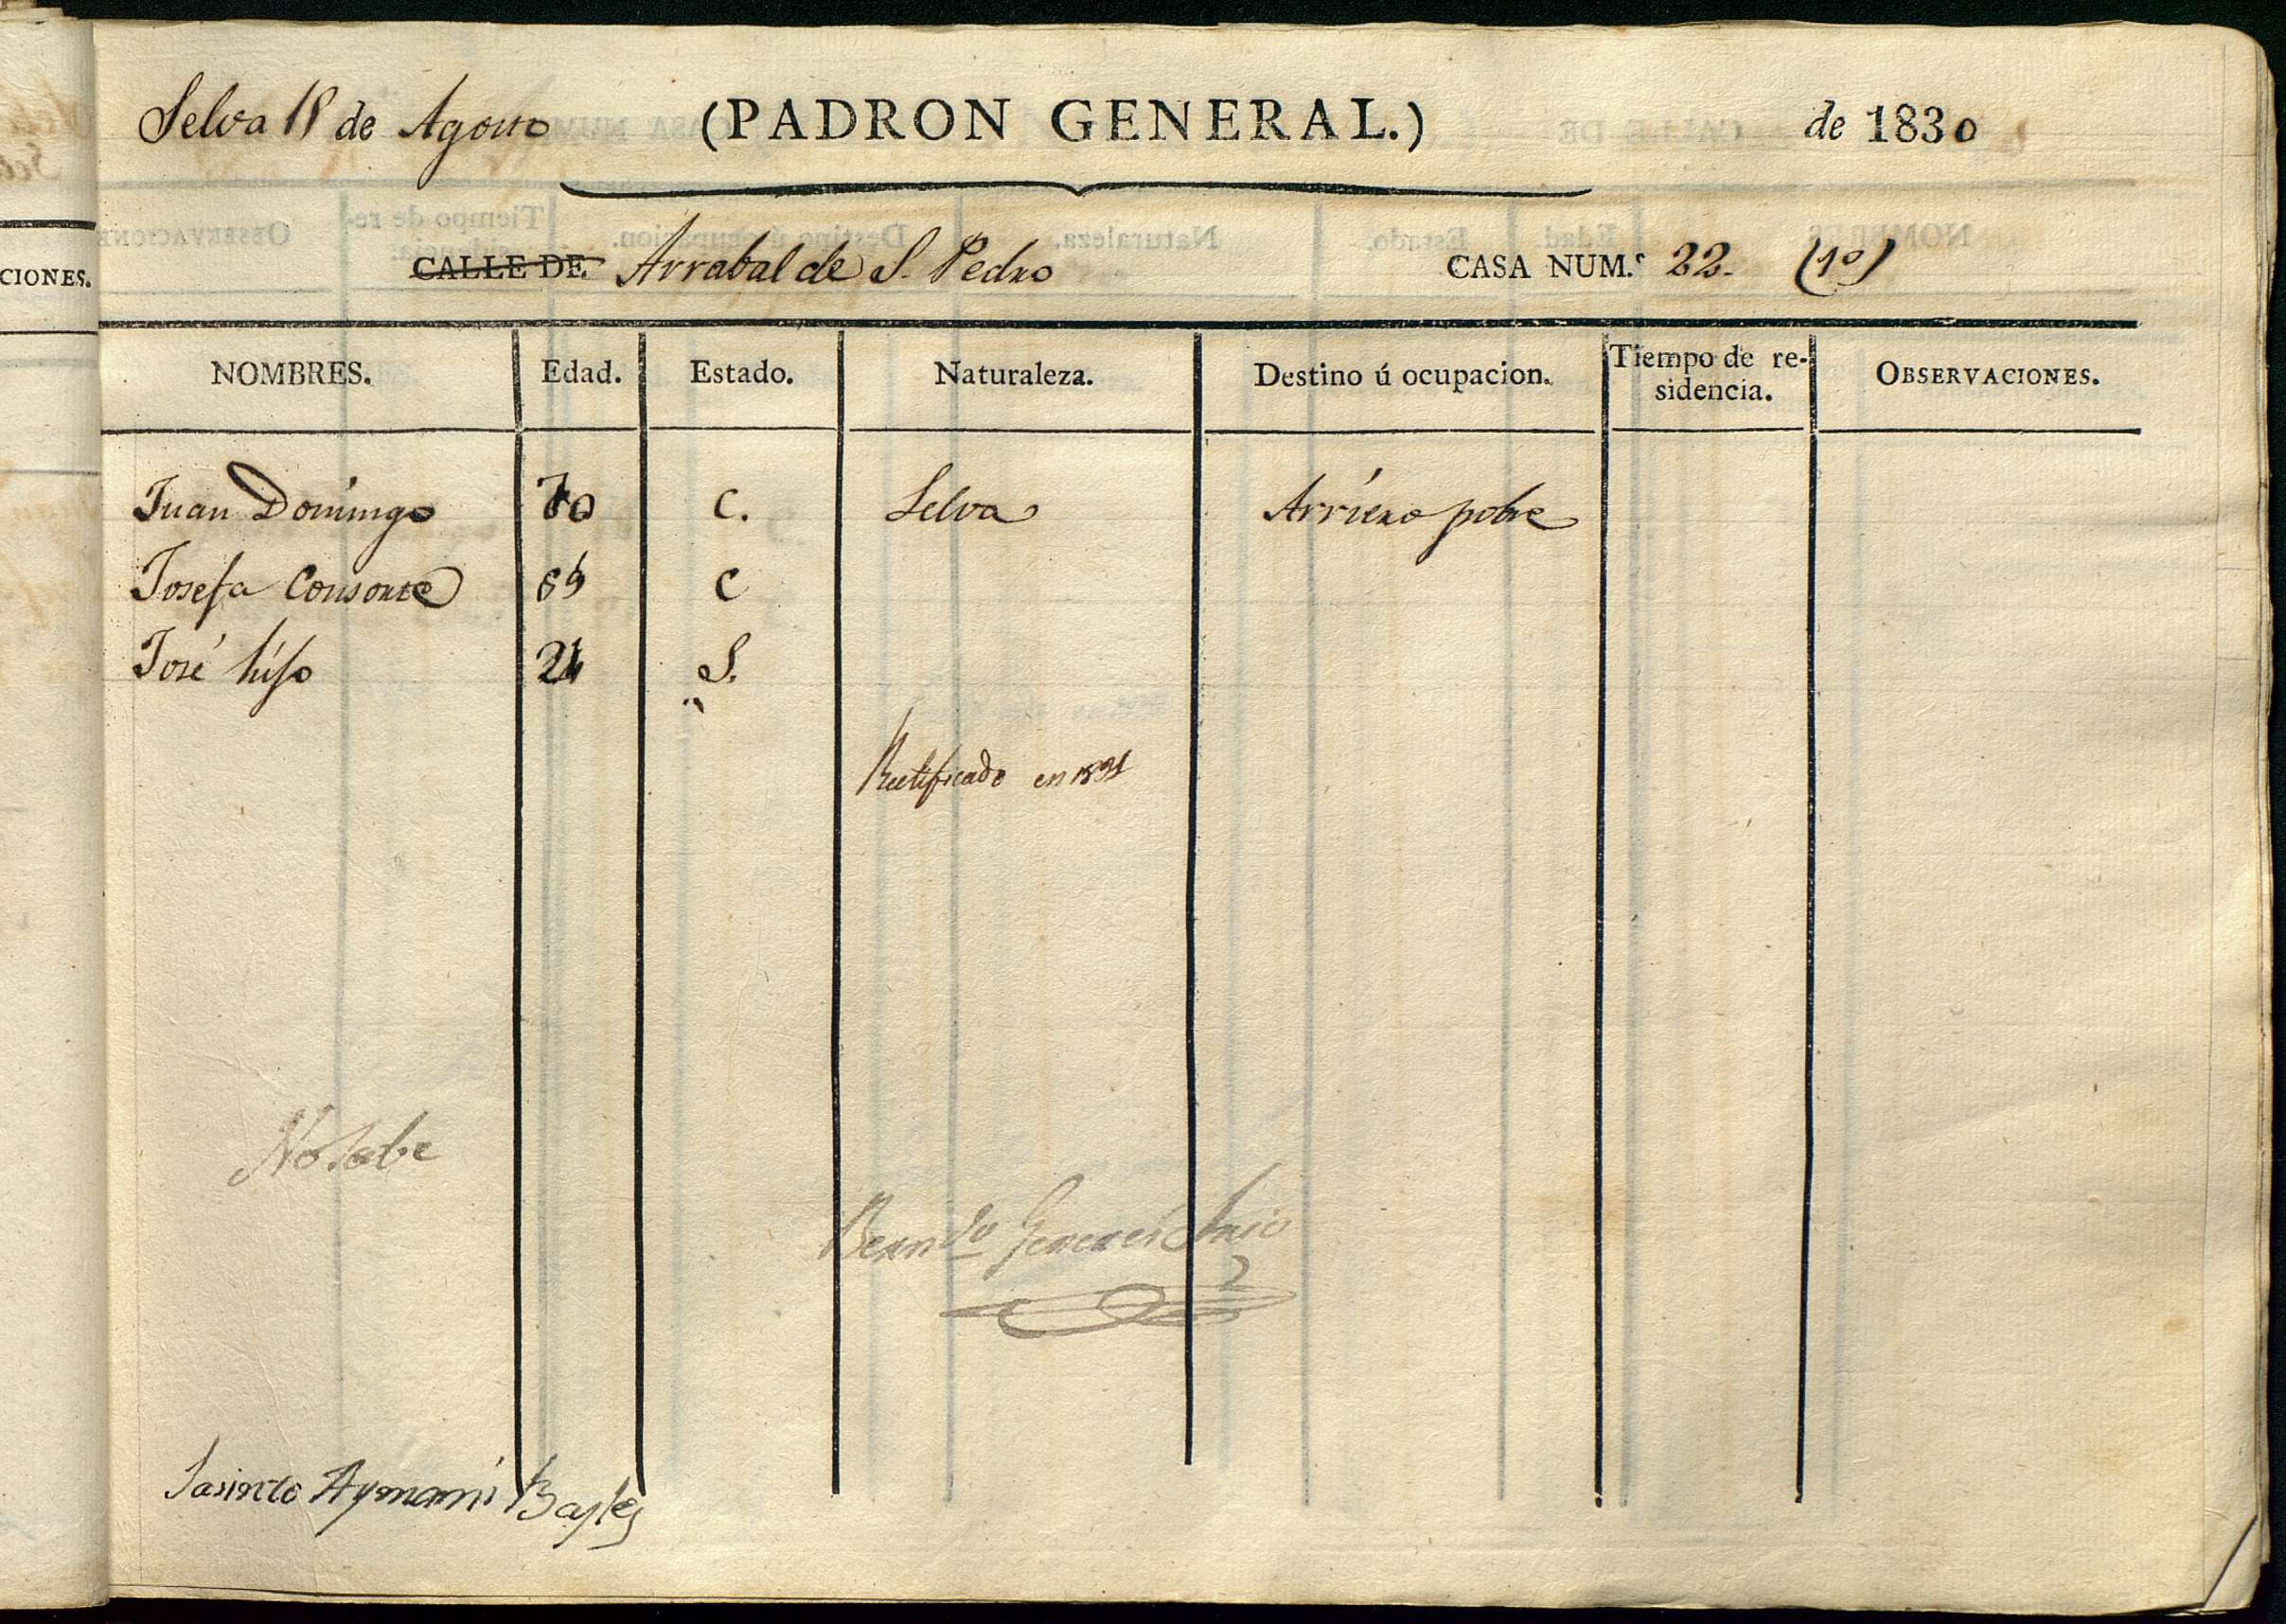 CIONES.
Selva 18 de Agosto (PADRON GENERAL.) de 1830
CALLE DE Arrabal de S. Pedro CASA NUM.º 22. (1º)
NOMBRES. Edad. Estado. Naturaleza. Destino ú ocupacion. Tiempo de re-
sidencia. OBSERVACIONES.
Juan Domingo 70 C. Selva Arriero pobre
Josefa Consorte 69 C
José hijo S.
Rectificado en 1831
No Sabe
Jasinto Aymami Bayle